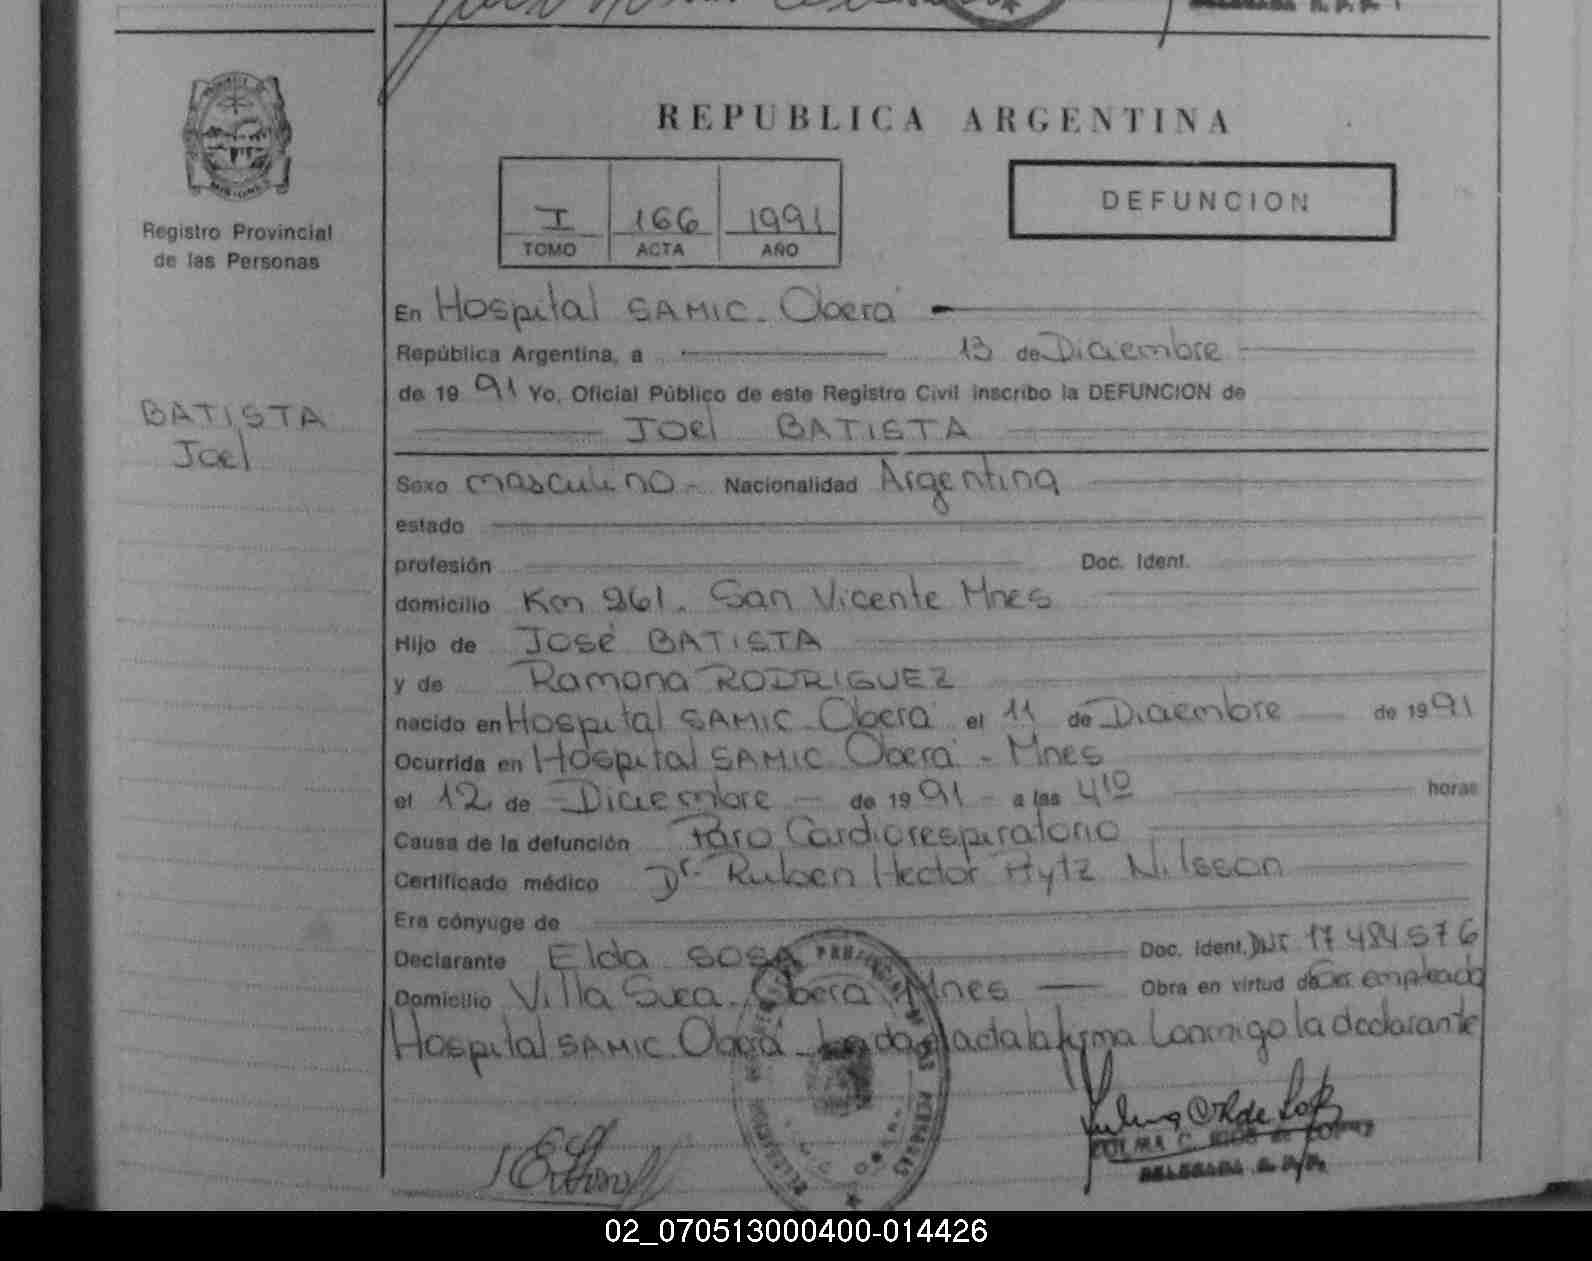 REPUBLICA ARGENTINA
MISIONES
Registro Provincial
de las Personas
I 166 1991
TOMO ACTA AÑO
DEFUNCION
BATISTA
Joel
En Hospital SAMIC - Oberá
República Argentina, a 13 de Diciembre
de 19 91 Yo, Oficial Público de este Registro Civil inscribo la DEFUNCION de
Joel BATISTA
Sexo masculino - Nacionalidad Argentina
estado
profesión Doc. Ident.
domicilio Km 961. San Vicente Mnes
Hijo de José BATISTA
y de Ramona RODRIGUEZ
nacido en Hospital SAMIC Oberá el 11 de Diciembre de 19 91
Ocurrida en Hospital SAMIC Oberá - Mnes
el 12 de Diciembre de 19 91 a las 4 10 horas
Causa de la defunción Paro Cardiorespiratorio
Certificado médico Dr. Ruben Hector Hytz Nilsson
Era cónyuge de
Declarante Elda SOSA Doc. Ident. DNI 17 484 576
Domicilio Villa Sueca - Oberá Mnes Obra en virtud de Ser empleada
Hospital SAMIC Oberá Leída el acta la firma conmigo la declarante
02_070513000400-014426